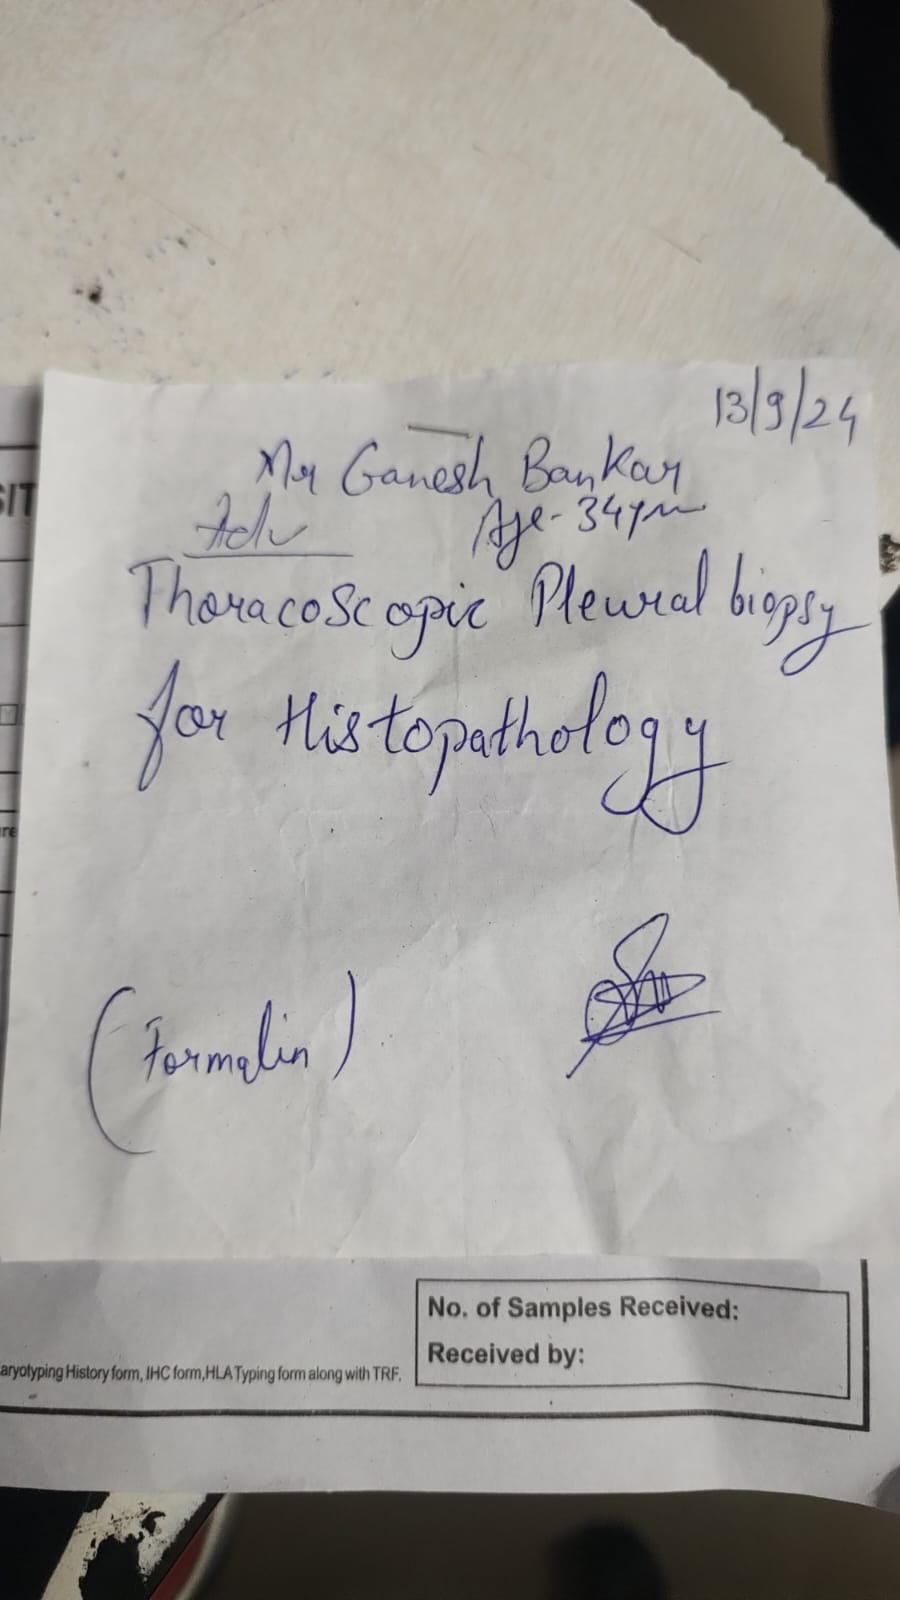 13/9/24
Mr Ganesh Bankar
Adv
Age- 34yrs
Thoracoscopic Pleural biopsy
for Histopathology
(Formalin)
SIT
re
No. of Samples Received:
Received by:
aryotyping History form, IHC form,HLA Typing form along with TRF.